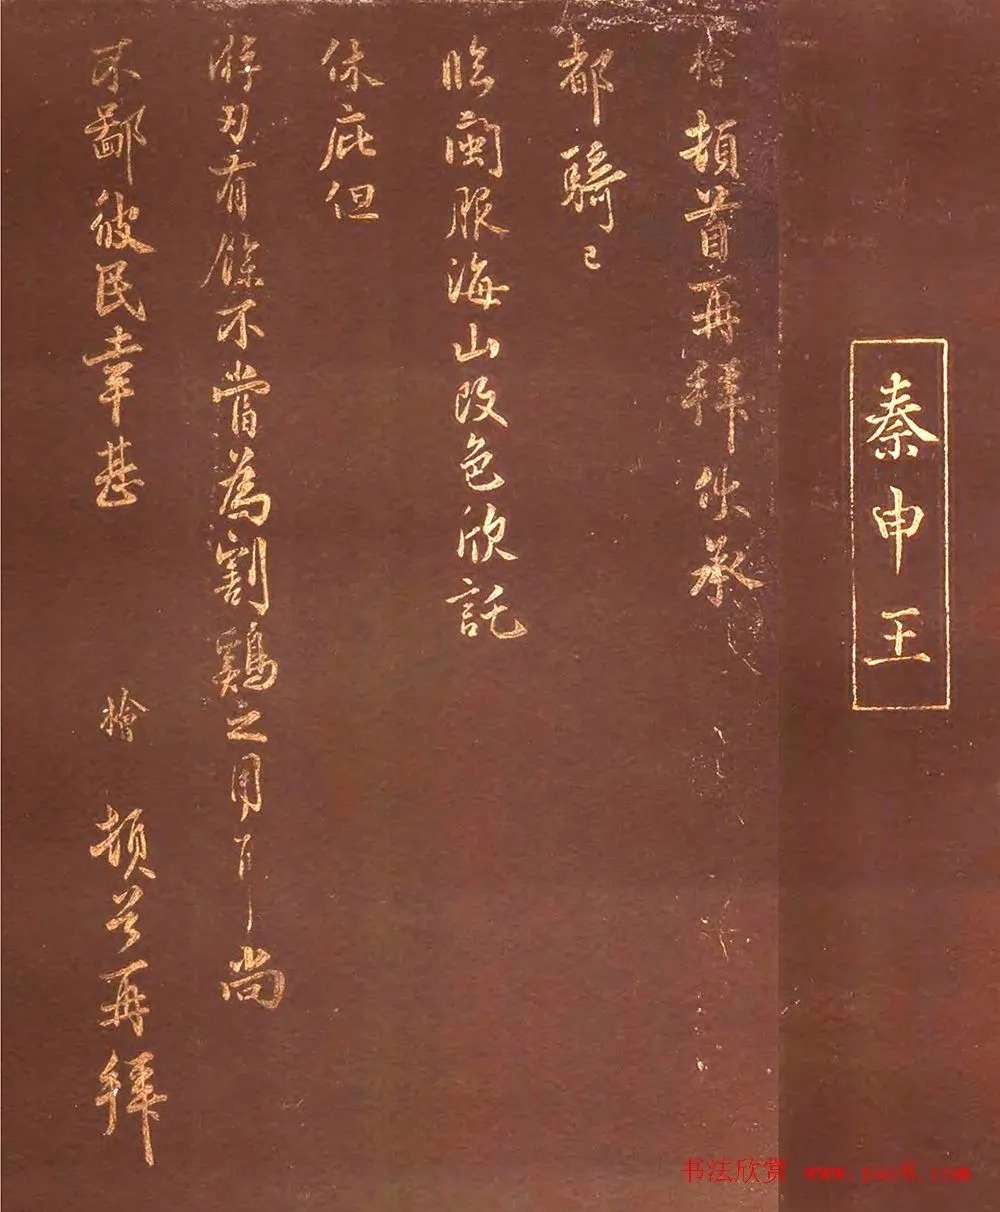 秦申王
檜頓首再拜伏承
都騎已
臨閩服海山改色欣託
休庇但
游刃有餘不當為割雞之用耳尚
不鄙彼民幸甚 檜 頓首再拜
书法欣赏 www.yac8.com